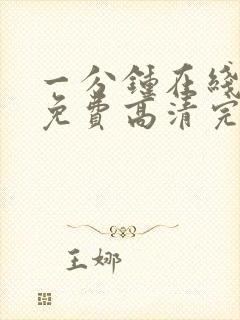 一分鍾在綫
免費高清完
王娜